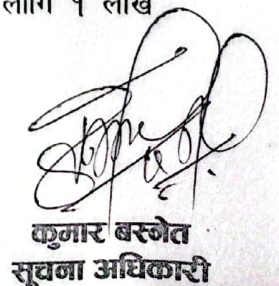 लागि १ लाख
कुमार बस्नेत
सूचना अधिकारी